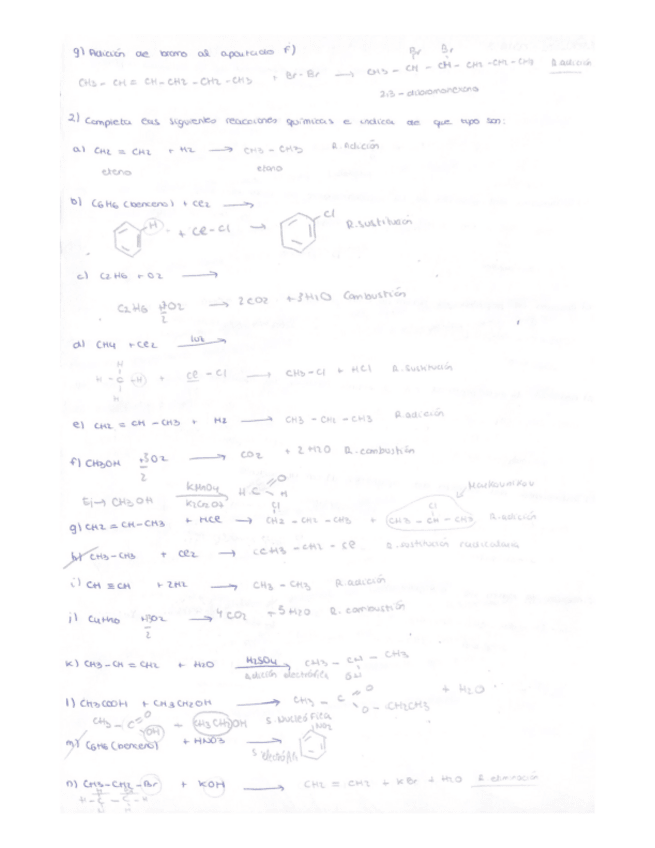 g) Adición de bromo al apartado f)
Br Br
CH3 - CH = CH - CH2 - CH2 - CH3 + Br - Br → CH3 - CH - CH - CH2 - CH2 - CH3 R adición
2,3 - dibromohexano
2) Completa las siguientes reacciones químicas e indica de que tipo son:
a) CH2 = CH2 + H2 → CH3 - CH3 R. Adición
eteno etano
b) C6H6 (benceno) + Cl2 →
H + Cl - Cl → Cl R. sustitución
c) C2H6 + O2 →
C2H6 O2 → 2CO2 + 3H2O Combustión
2
d) CH4 + Cl2 luz →
H
H - C - H + Cl - Cl → CH3 - Cl + HCl R. Sustitución
H
e) CH2 = CH - CH3 + H2 → CH3 - CH2 - CH3 R. adición
f) CH3OH + 3O2 → CO2 + 2H2O R. combustión
2
Ej → CH3OH KMnO4 H C O H
K2Cr2O7
Markovnikov
Cl Cl
g) CH2 = CH - CH3 + HCl → CH2 - CH2 - CH3 + CH3 - CH - CH3 R. adición
h) CH3 - CH3 + Cl2 → CH3 - CH2 - Cl R. sustitución radicalaria
i) CH ≡ CH + 2H2 → CH3 - CH3 R. adición
j) C4H10 O2 → 4CO2 + 5H2O R. combustión
2
k) CH3 - CH = CH2 + H2O H2SO4 → CH3 - CH - CH3
Adición electrófila OH
l) CH3COOH + CH3CH2OH → CH3 - C O O - CH2CH3 + H2O
CH3 - C O OH + CH3CH2OH S. Nucleófila
m) C6H6 (benceno) + HNO3 → NO2
S. electrófila
n) CH3 - CH2 - Br + KOH → CH2 = CH2 + KBr + H2O R eliminación
H - C - C - H